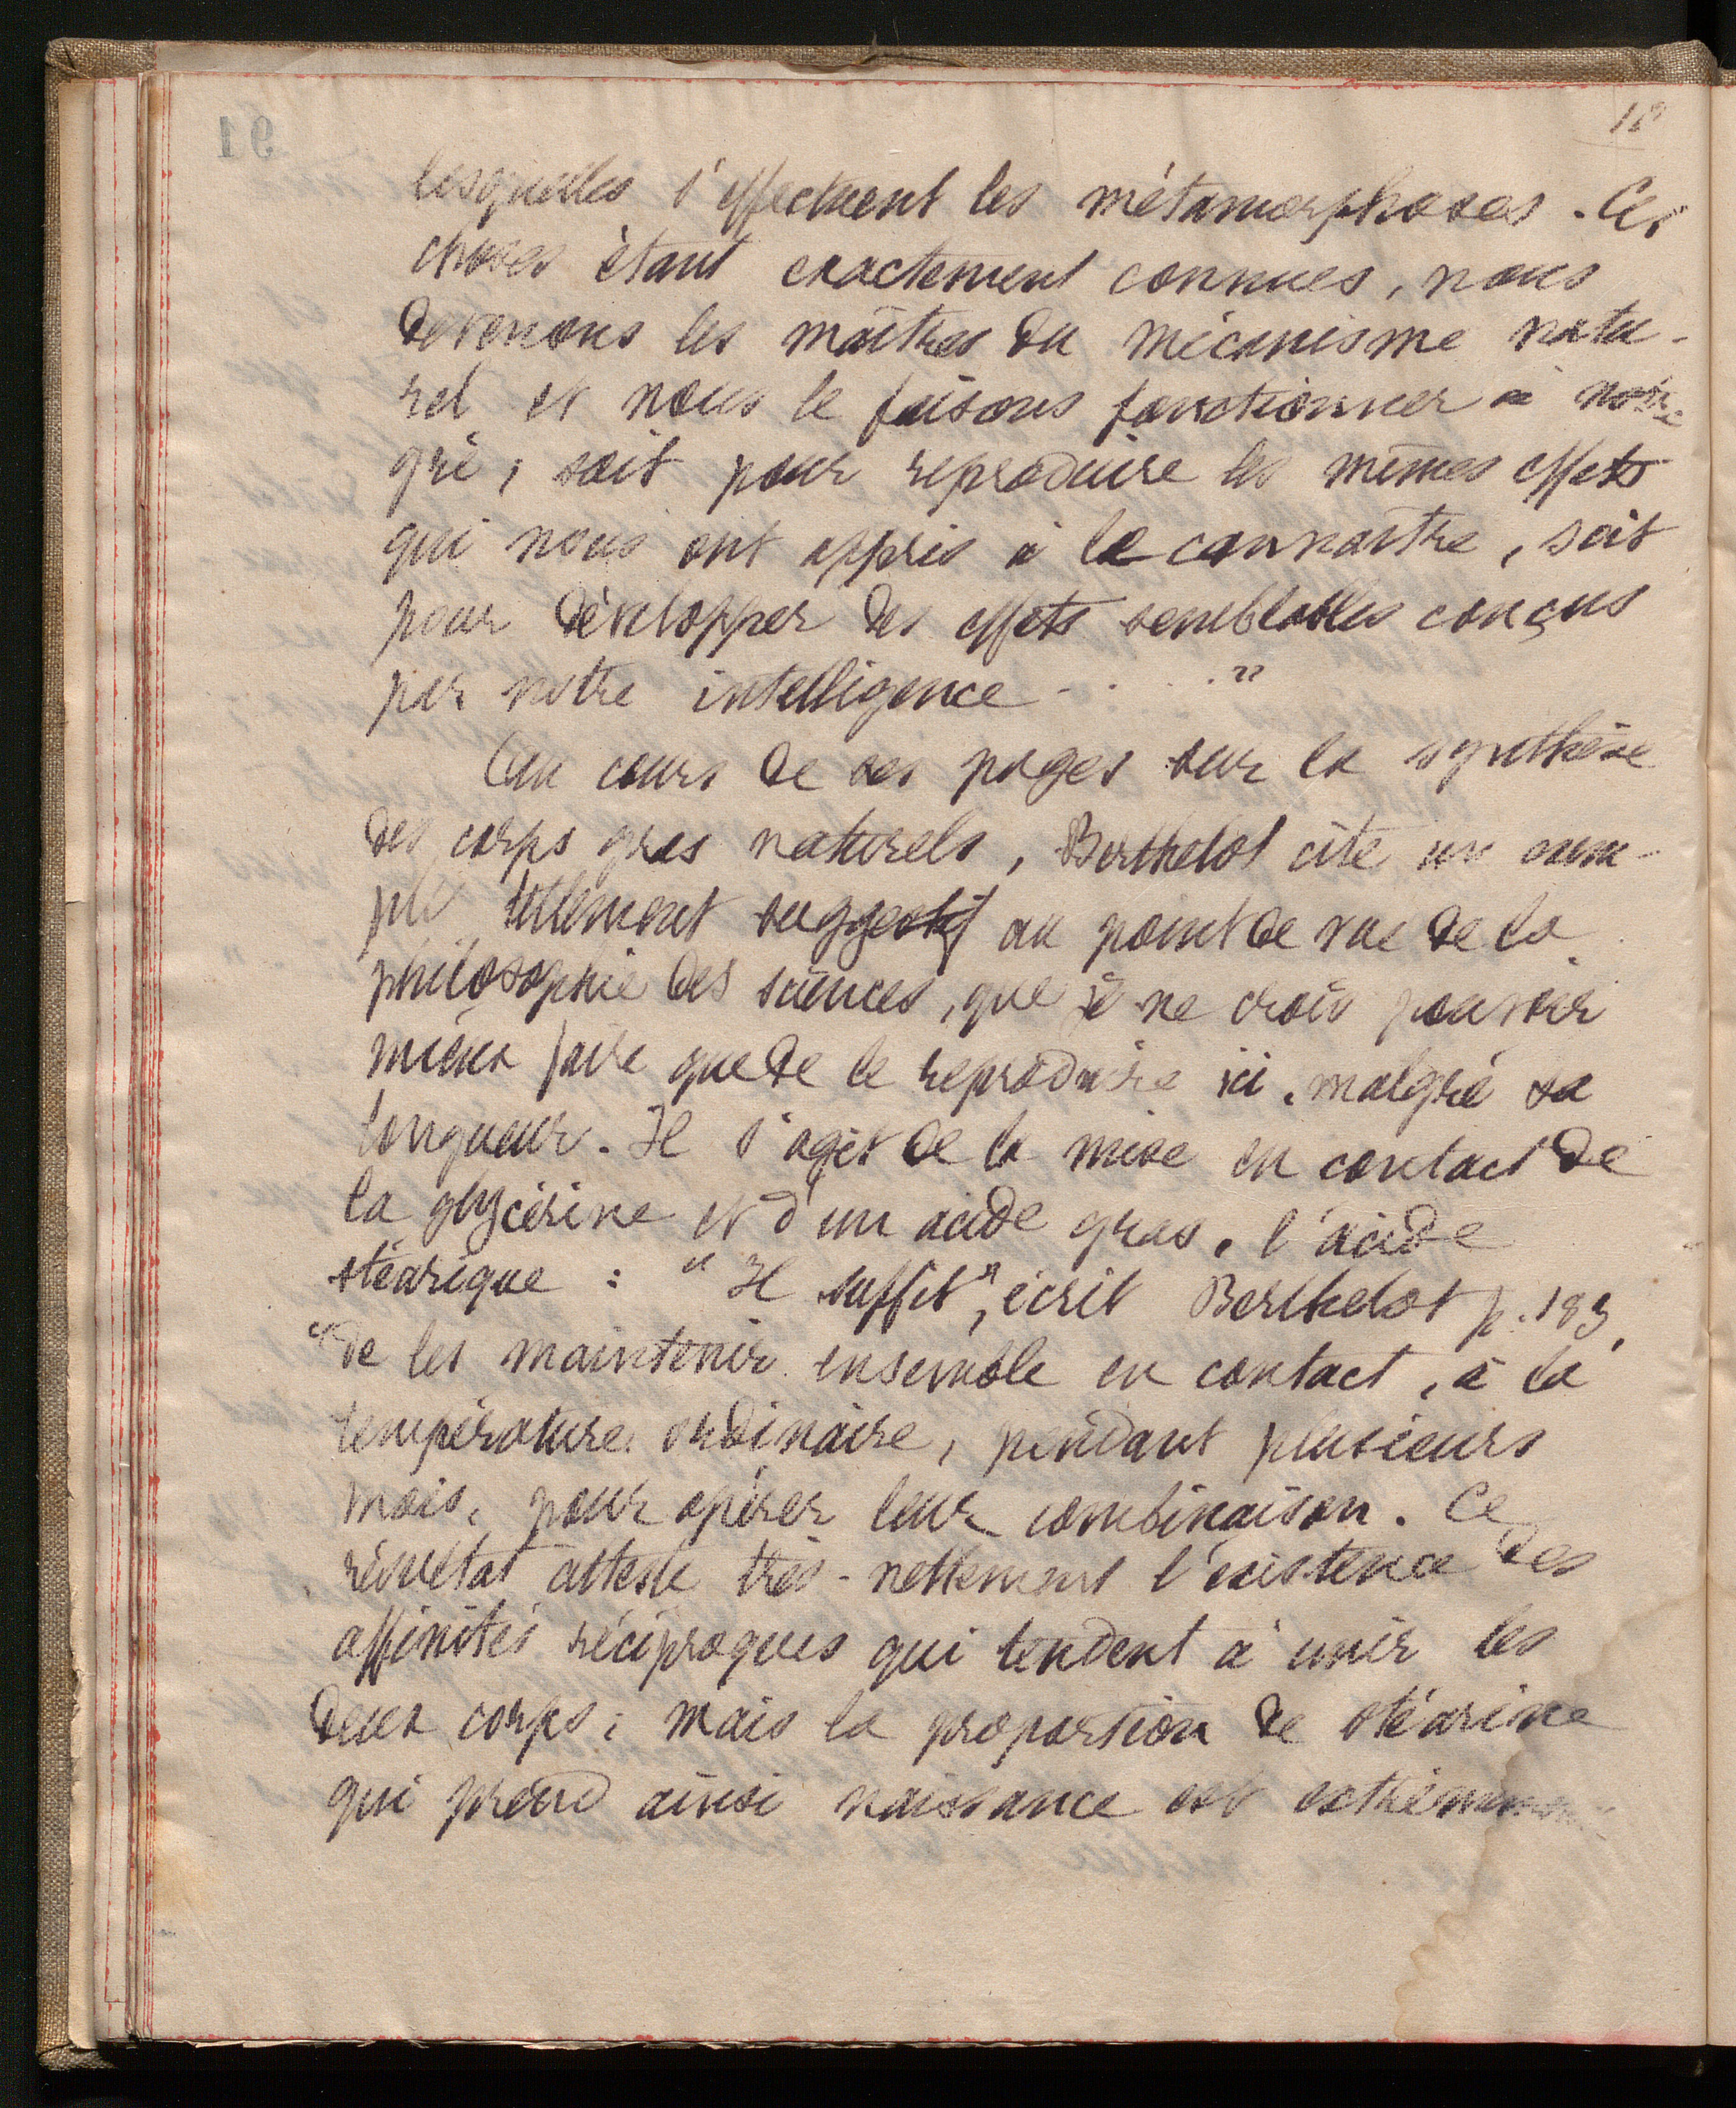 lesquelles s'effectuent les métamorphoses. Ces
choses étant exactement connues, nous
devenons les maîtres du mécanisme natu-
rel et nous le faisons fonctionner à notre
gré, soit pour reproduire les mêmes effets
qui nous ont appris à le connaître, soit
pour développer des effets semblables conçus
par notre intelligence . . . . "
Au cours de ses pages sur la synthèse
des corps gras naturels, Berthelot cite un exem-
ple tellement suggestif au point de vue de la
philosophie des sciences, que je ne crois pouvoir
mieux faire que de le reproduire ici, malgré sa
longueur. Il s'agit de la mise en contact de
la glycérine et d'un acide gras, l'acide
stéarique : "Il suffit", écrit Berthelot p. 193,
"de les maintenir ensemble en contact, à la
température ordinaire, pendant plusieurs
mois, pour opérer leur combinaison. Ce
résultat atteste très-nettement l'existence des
affinités réciproques qui tendent à unir les
deux corps ; mais la proportion de stéarine
qui prend ainsi naissance est extrêmement